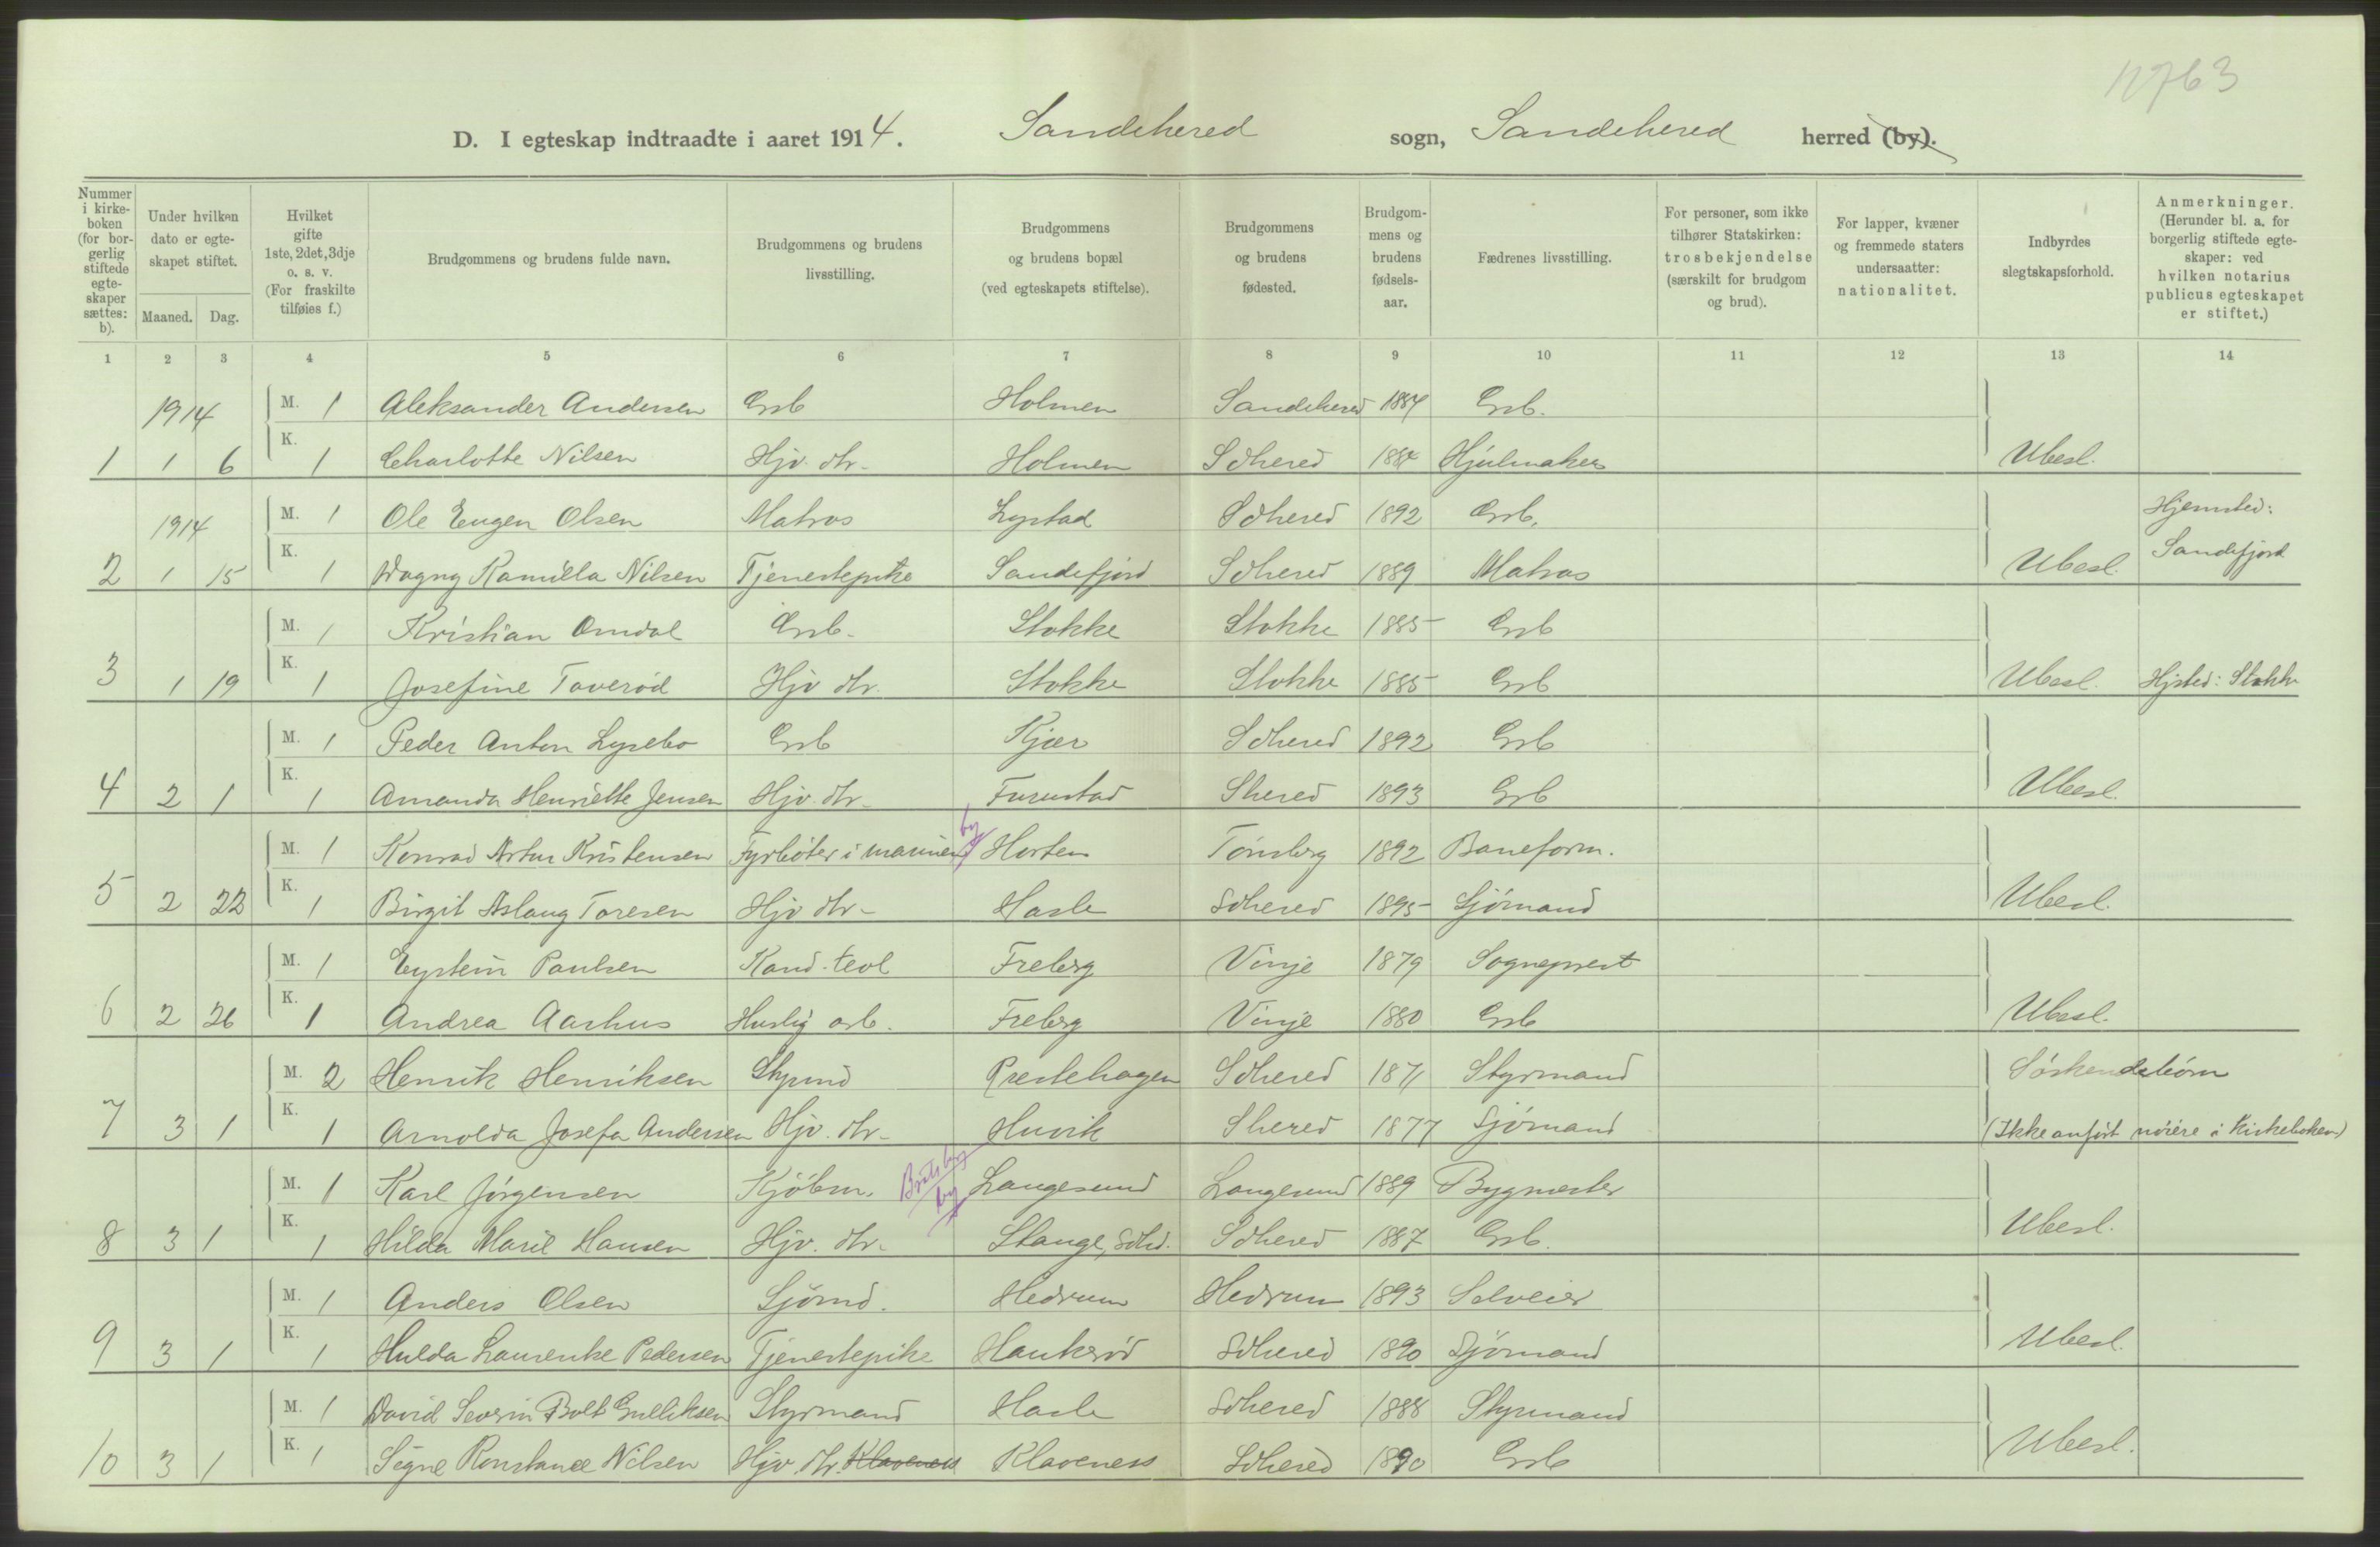 12763
D. I egteskap indtraadte i aaret 1914. Sandehered sogn, Sandehered herred (by).
Nummer i kirkeboken (for borgerlig stiftede egteskaper sættes: b).
Under hvilken dato er egteskapet stiftet.
Maaned. Dag.
Hvilket gifte 1ste, 2det, 3dje o. s. v. (For fraskilte tilføies f.)
Brudgommens og brudens fulde navn.
Brudgommens og brudens livsstilling.
Brudgommens og brudens bopæl (ved egteskapets stiftelse).
Brudgommens og brudens fødested.
Brudgommens og brudens fødselsaar.
Fædrenes livsstilling.
For personer, som ikke tilhører Statskirken: trosbekjendelse (særskilt for brudgom og brud).
For lapper, kvæner og fremmede staters undersaatter: nationalitet.
Indbyrdes slegtskapsforhold.
Anmerkninger. (Herunder bl. a. for borgerlig stiftede egteskaper: ved hvilken notarius publicus egteskapet er stiftet.)
1 2 3 4 5 6 7 8 9 10 11 12 13 14
1914 M. 1 Aleksander Andersen Grb Holmen Sandehered 1884 Grb.
1 1 6 K. 1 Charlotte Nilsen Hjv. dtr. Holmen Sdhered 1884 Hjulmaker Ubesl.
1914 M. 1 Ole Eugen Olsen Matros Lystad Sdhered 1892 Grb. Hjemsted:
2 1 15 K. 1 Dagny Kamilla Nilsen Tjenestepike Sandefjord Sdhered 1889 Matros Ubesl. Sandefjord
M. 1 Kristian Omdal Grb. Stokke Stokke 1885 Grb
3 1 19 K. 1 Josefine Taverød Hjv dtr. Stokke Stokke 1885 Grb Ubesl. Hjsted: Stokke
M. 1 Peder Anton Lysebo Grb Kjær Sdhered 1892 Grb
4 2 1 K. 1 Amanda Henriette Jensen Hjv. dtr. Furustad Shered 1893 Grb Ubesl.
M. 1 Konrad Artur Kristensen Fyrbøter i marinen by Horten Tønsberg 1892 Baneform.
5 2 22 K. 1 Birgit Aslaug Toresen Hjv dtr. Hasle Sdhered 1895 Sjømand Ubesl.
M. 1 Eystein Paulsen Kand. teol Freberg Vinje 1879 Sogneprest
6 2 26 K. 1 Andrea Aarhus Huslig arb. Freberg Vinje 1880 Grb Ubesl.
M. 2 Henrik Henriksen Stymd Prestehagen Sdhered 1871 Styrmand Søskendebørn
7 3 1 K. 1 Arnolda Josefa Andersen Hjv. dtr. Huvik Shered 1877 Sjømand (Ikke anført nøiere i Kirkeboken)
M. 1 Karl Jørgensen Kjøbm. Bratsberg by Langesund Langesund 1889 Bygmester
8 3 1 K. 1 Hilda Marie Hansen Hjv. dtr. Stange, Sdhd. Sdhered 1887 Grb. Ubesl.
M. 1 Anders Olsen Sjømd. Hedrum Hedrum 1893 Selveier
9 3 1 K. 1 Hulda Laurenke Pedersen Tjenestepike Haukerød Sdhered 1890 Sjømand Ubesl.
M. 1 David Severin Bolt Gulliksen Styrmand Hasle Sdhered 1888 Styrmand
10 3 1 K. 1 Signe Konstance Nilsen Hjv. dtr. Klavenes Klavenes Sdhered 1890 Grb Ubesl.